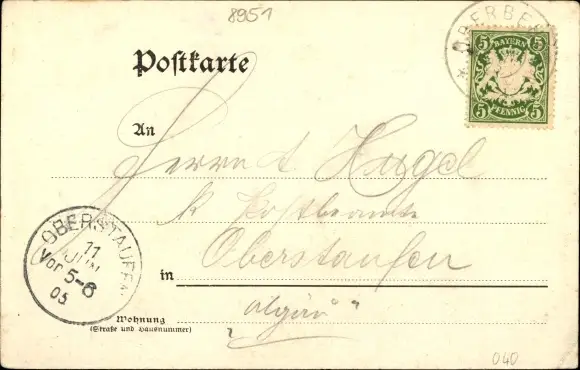 8951
OBERBE
5 BAYERN 5
5 PFENNIG 5
Postkarte
An
Herrn A. Hugel
k. Postbeamte
OBERSTAUFEN
11
JUN
Vor 5-6
05
in Oberstaufen
Algäu
Wohnung
(Straße und Hausnummer)
040